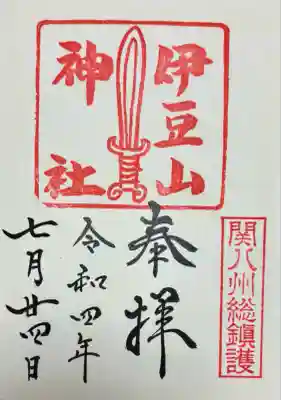 伊豆山
神社
関八州総鎮護
奉拝
令和四年
七月廿四日